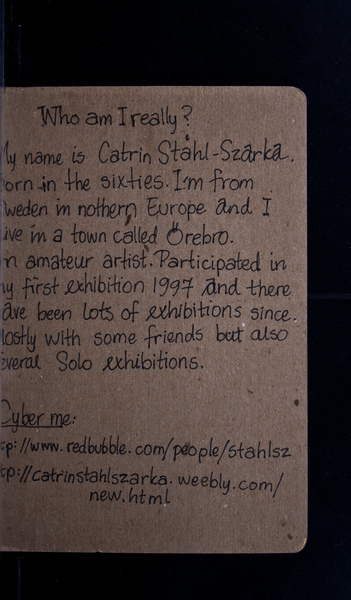 Who am I really?
My name is Catrin Ståhl-Szarka.
orn in the sixties. I'm from
weden in nothern Europe and I
ive in a town called Örebro.
n amateur artist. Participated in
y first exhibition 1997 and there
ave been lots of exhibitions since.
ostly with some friends but also
everal Solo exhibitions.
Cyber me:
tp://www.redbubble.com/people/stahlsz
tp://catrinstahlszarka.weebly.com/
new.html